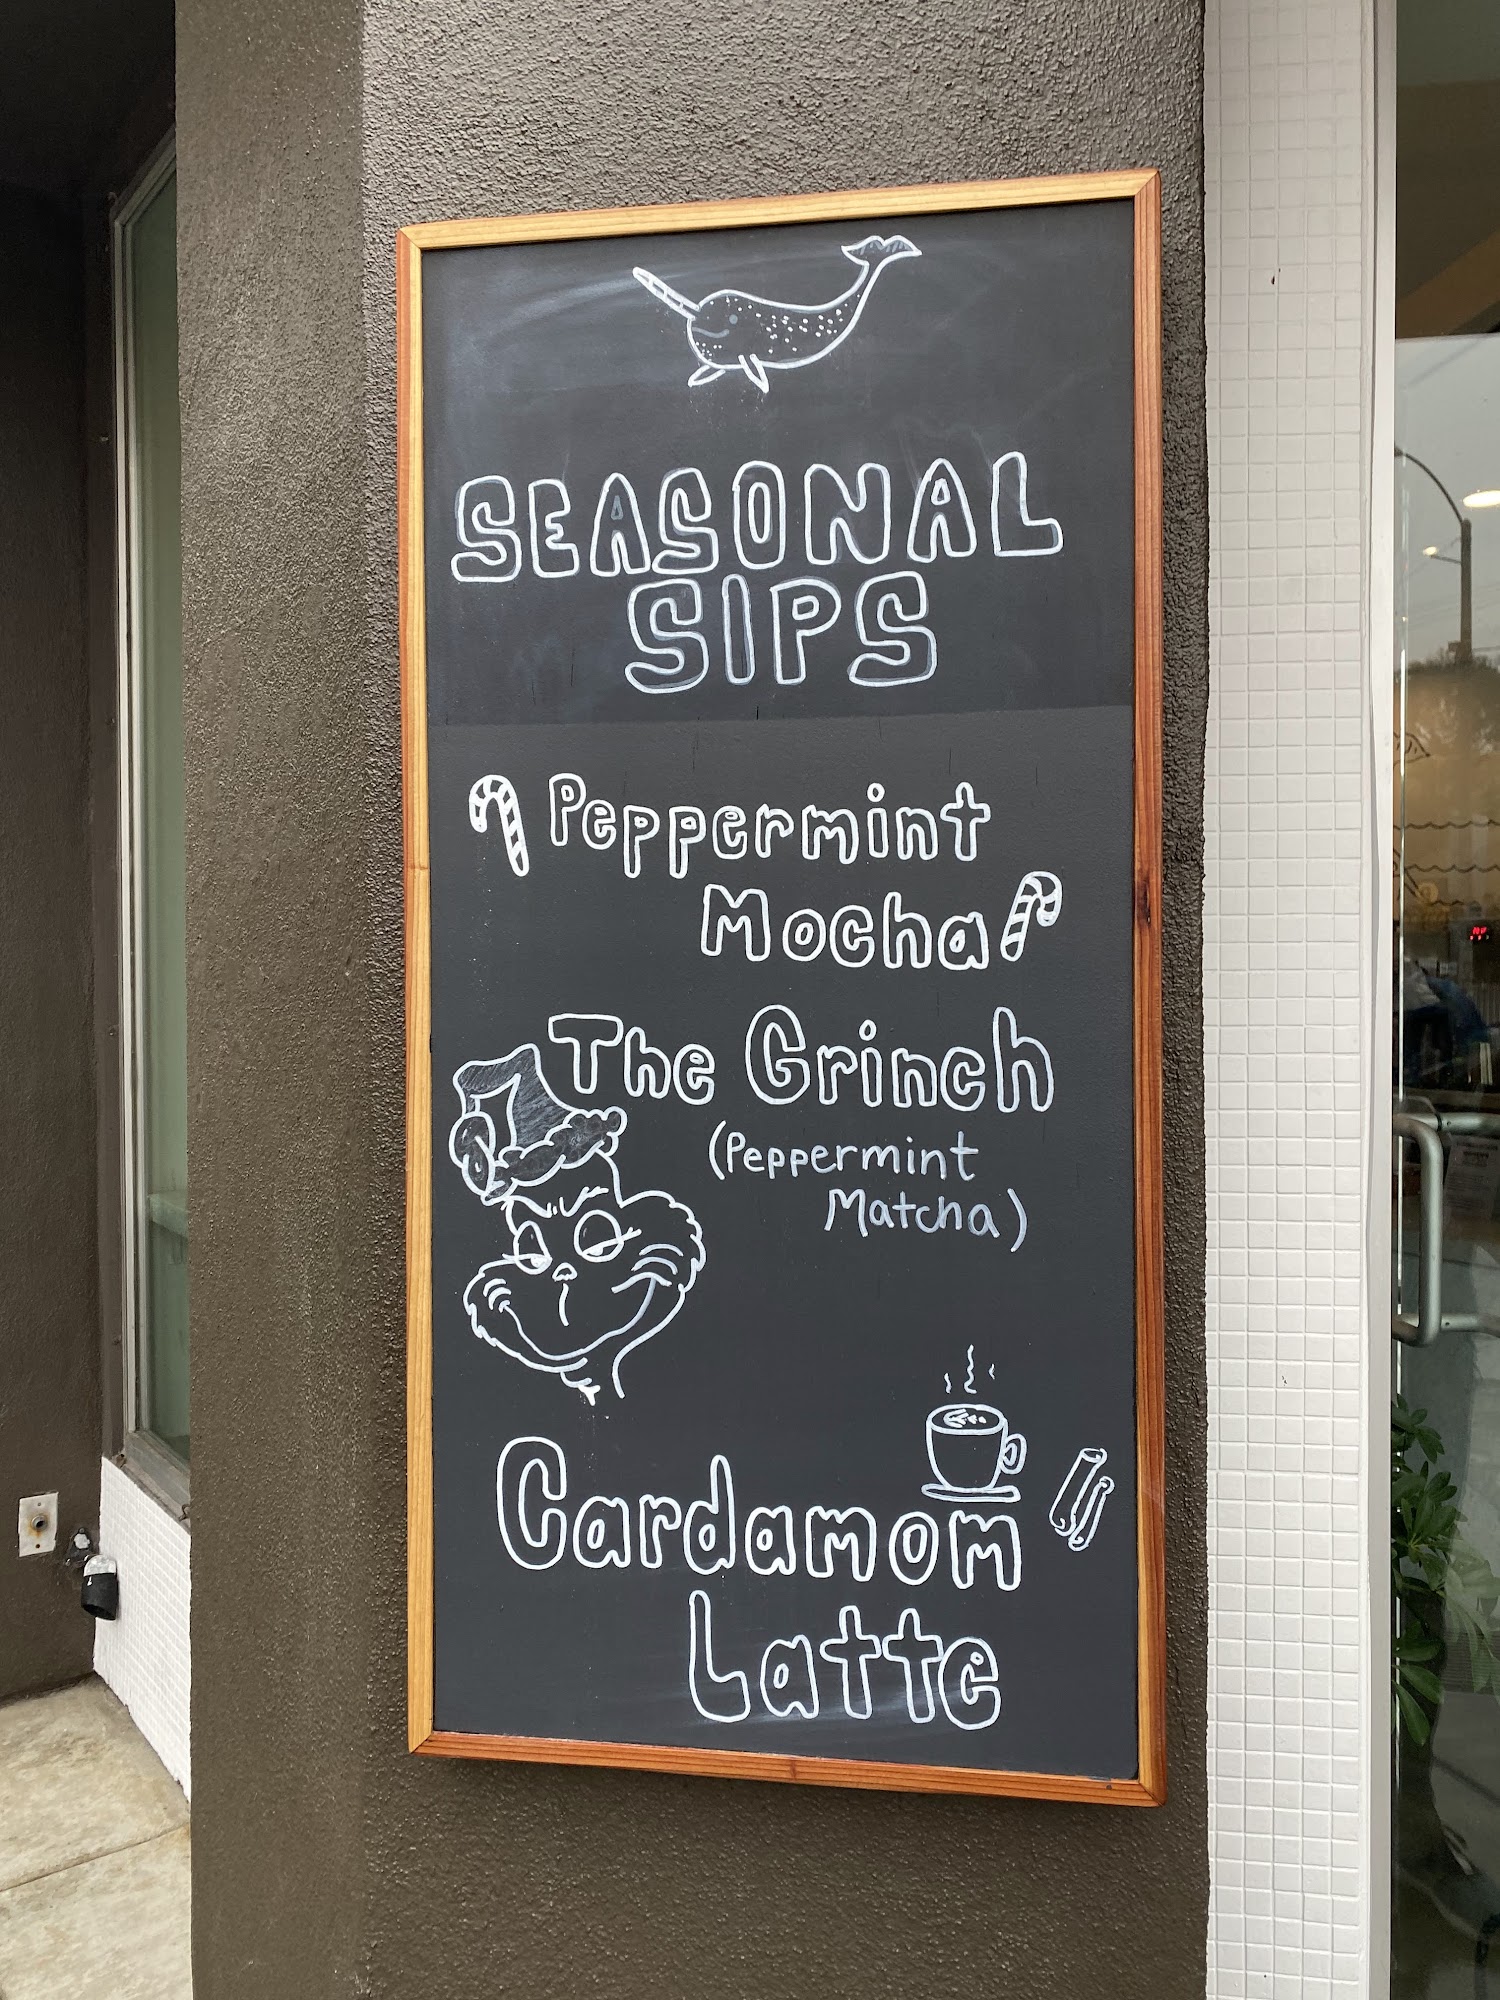 SEASONAL
SIPS
Peppermint
Mocha
The Grinch
(Peppermint
Matcha)
Cardamom
Latte